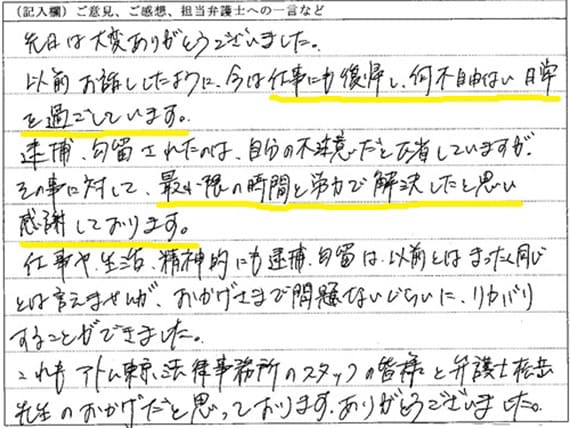 (記入欄) ご意見、ご感想、担当弁護士への一言など
先日は大変ありがとうございました。
以前お話ししたように、今は仕事にも復帰し、何不自由ない日常
を過ごしています。
逮捕、勾留されたのは、自分の不注意だと反省していますが、
その事に対して、最小限の時間と労力で解決したと思い
感謝しております。
仕事や、生活、精神的にも逮捕、勾留は、以前とはまったく同じ
とは言えませんが、おかげさまで問題ないぐらいに、リカバリ
することができました。
これもアトム東京法律事務所のスタッフの皆様と弁護士
先生のおかげだと思っております。ありがとうございました。